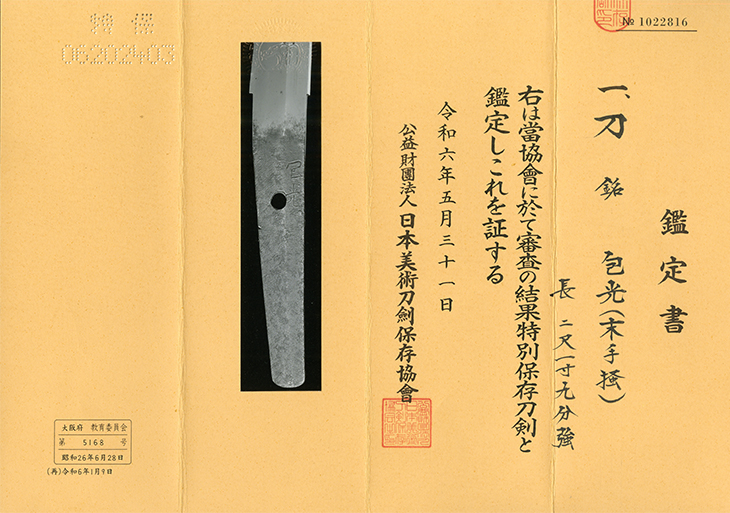 № 1022816
鑑定書
一、刀 銘 包光(末手掻)
長 二尺一寸九分強
右は當協會に於て審査の結果特別保存刀剣と
鑑定しこれを証する
令和六年五月三十一日
公益財團法人 日本美術刀劍保存協會
特保
06202403
大阪府 教育委員会
第 5168 号
昭和26年6月28日
(再)令和6年1月9日